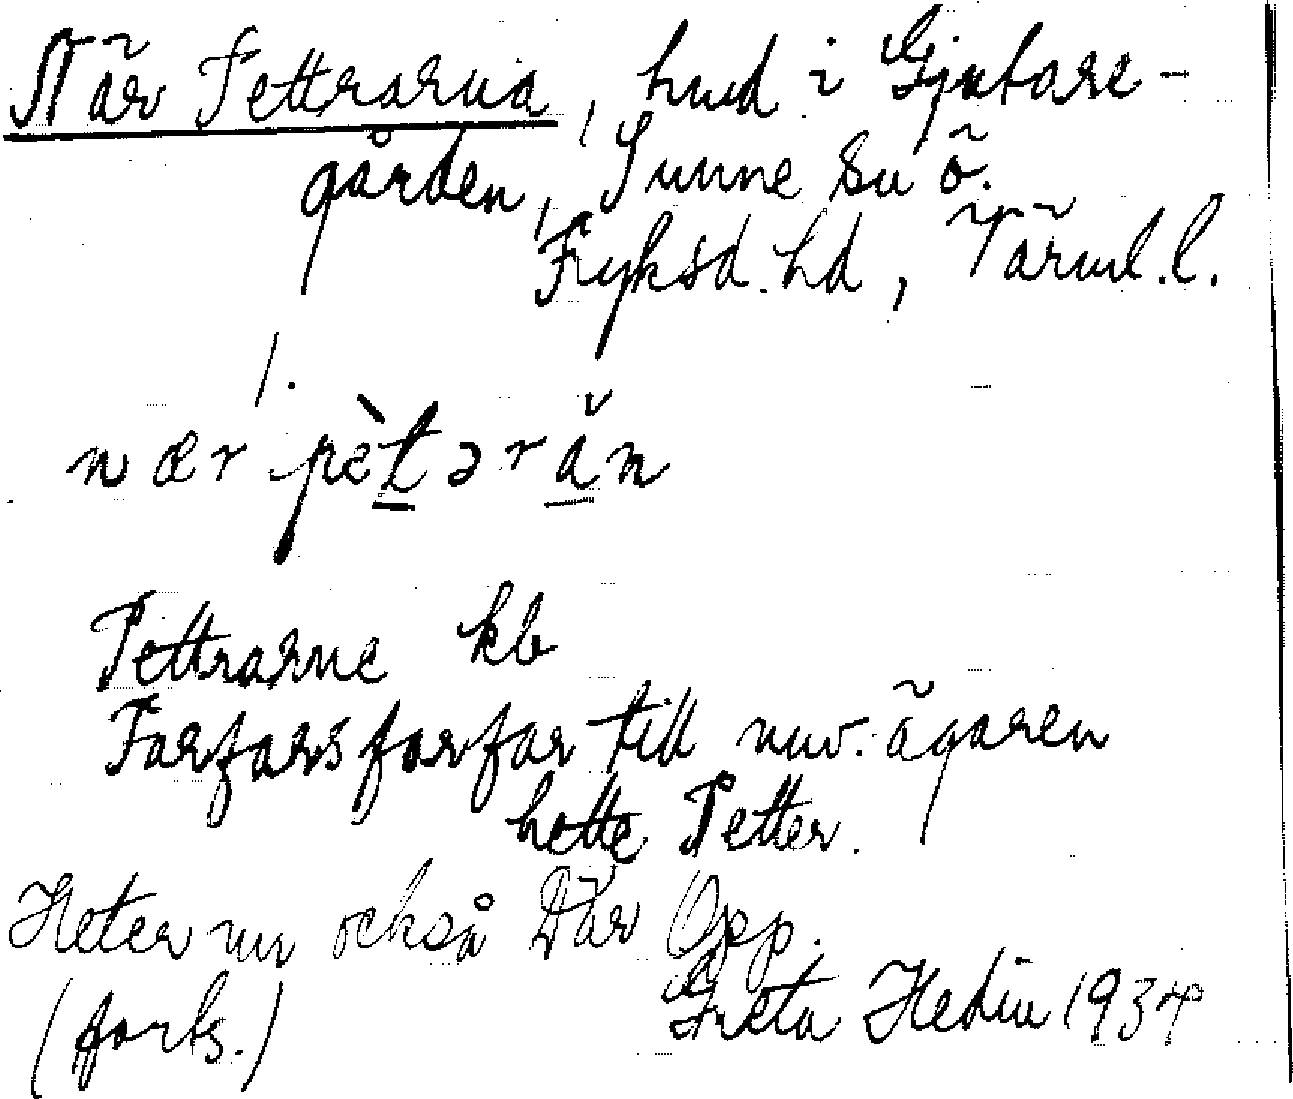 När Pettrarna, hmd i Gjutare-
gården, Sunne sn ö.
Fryksd. hd, Värml. l.
1.
nær pètəra̲n
Pettrarne kb
Farfars farfar till nuv. ägaren
hette Petter.
Heter nu också Där Opp.
(forts.) Greta Hedin 1934